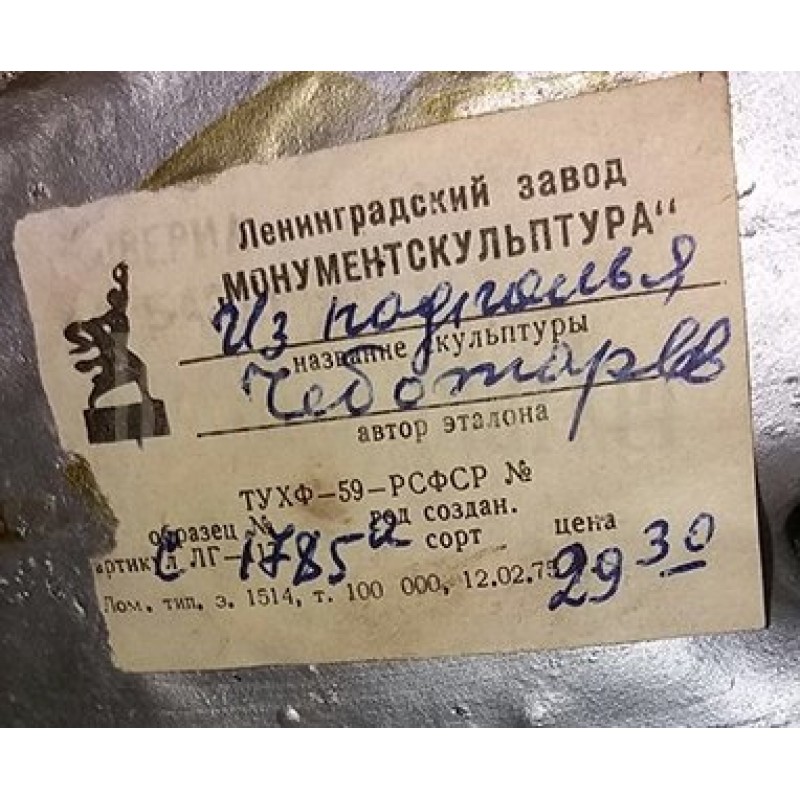 Ленинградский завод
„МОНУМЕНТСКУЛЬПТУРА“
Из подполья
название скульптуры
Чеботарёв
автор эталона
ТУХФ—59—РСФСР №
образец № год создан.
артикул ЛГ— 1785 а сорт цена
29 30
Лом. тип. з. 1514, т. 100 000, 12.02.75